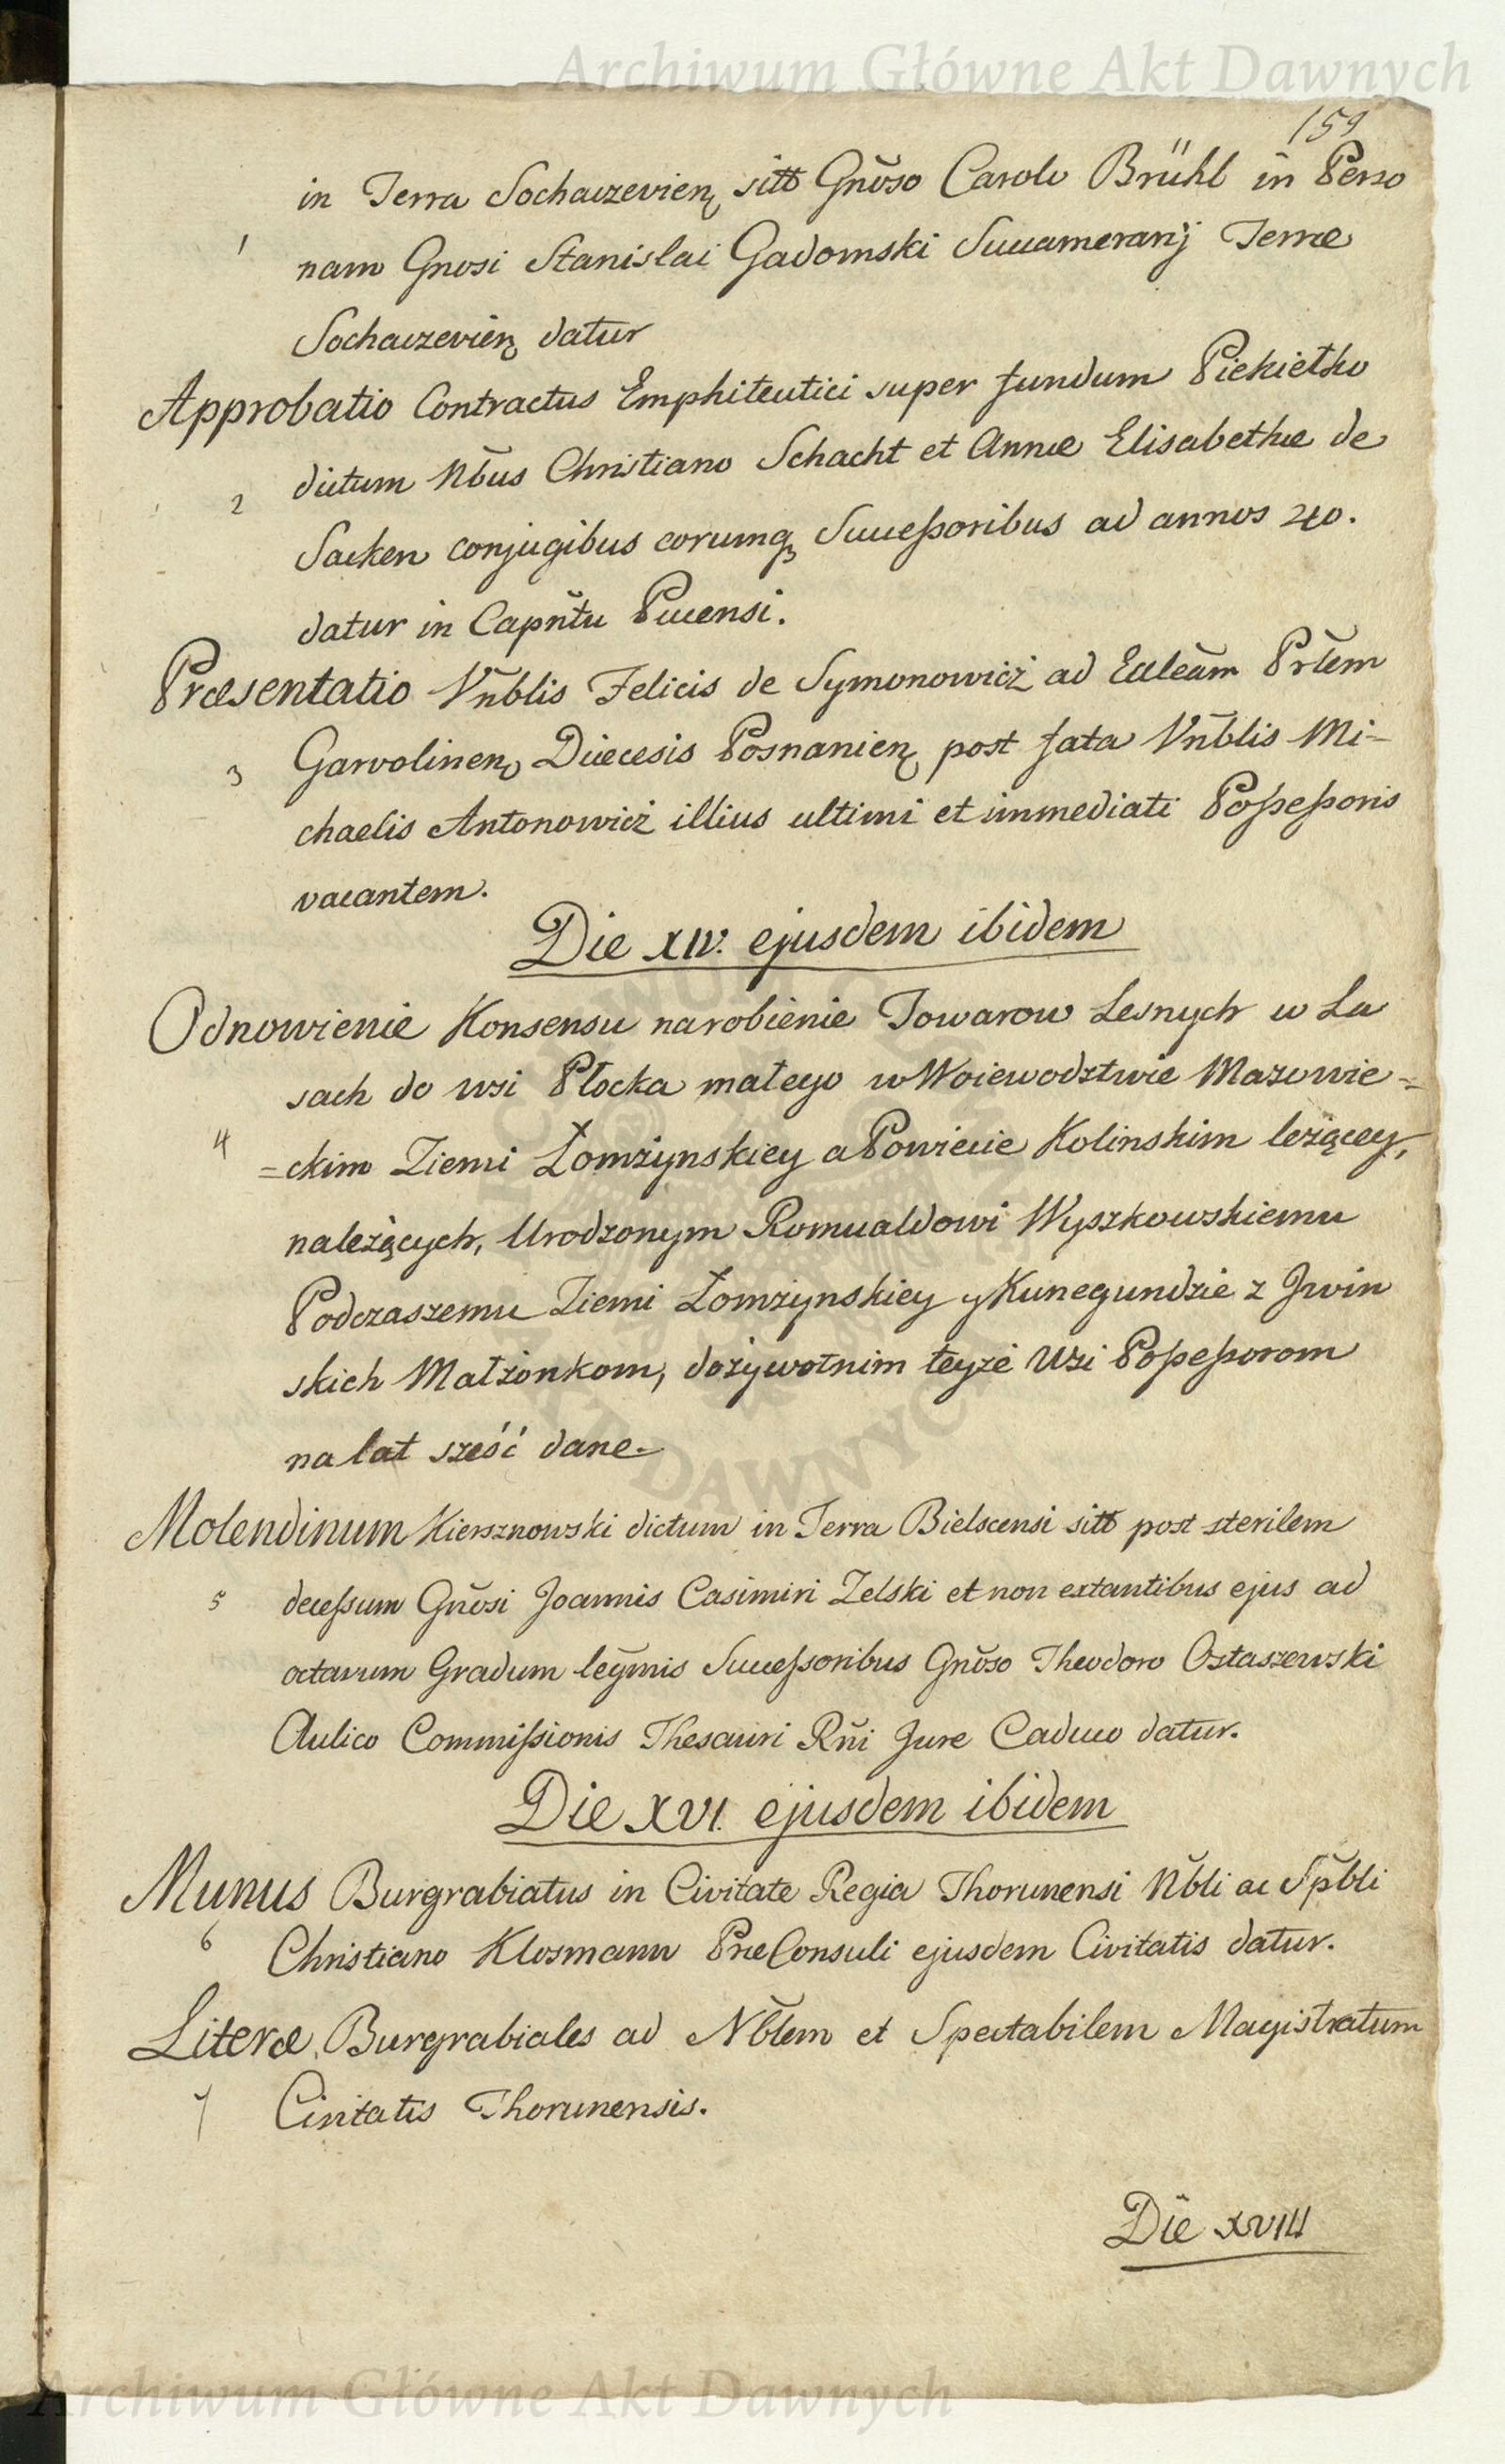 Archiwum Główne Akt Dawnych
159
in Terra Sochaczevien sitt Gnoso Carolo Brühl in Perso
1 nam Gnosi Stanislai Gadomski Succamerarij Terræ
Sochaczevien datur
Approbatio Contractus Emphiteutici super fundum Piekiełko
2 dictum Nbus Christiano Schacht et Annæ Elisabethæ de
Sacken conjugibus eorumq Successoribus ad annos 40.
datur in Capntu Pucensi.
Præsentatio Vnblis Felicis de Symonowicż ad Eccleam Prlem
3 Garvolinen Diecesis Posnanien post fata Vnblis Mi-
chaelis Antonowicż illius ultimi et immediati Possessoris
vacantem.
Die XIV. ejusdem ibidem
Odnowienie Konsensu narobienie Towarow Lesnych w La
sach do wsi Płocka małego w Woiewodztwie Mazowie=
4 =ckim Ziemi Łomżynskiey a Powiecie Kolinskim leżącey,
należących, Urodzonym Romualdowi Wyszkowskiemu
Podczaszemu Ziemi Łomżynskiey y Kunegundzie z Jrvin
skich Małżonkom, dożywotnim teyże Wsi Possessorom
na lat sześć dane.
Molendinum Kiersznowski dictum in Terra Bielscensi sitt post sterilem
5 decessum Gnosi Joannis Casimiri Zelski et non extantibus ejus ad
octavum Gradum legmis Successoribus Gnoso Theodoro Ostaszewski
Aulico Commissionis Thesauri Rni Jure Caduco datur.
Die XVI. ejusdem ibidem
Munus Burgrabiatus in Civitate Regia Thorunensi Nbli ac Spbli
6 Christiano Klosmann PræConsuli ejusdem Civitatis datur.
Literæ Burgrabiales ad Nblem et Spectabilem Magistratum
7 Civitatis Thorunensis.
Die XVIII
Archiwum Główne Akt Dawnych